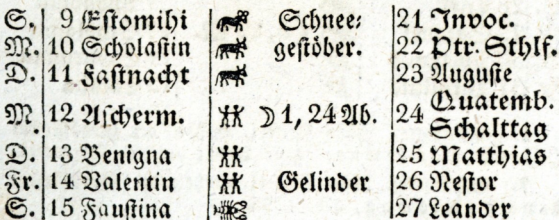 S. 9 Estomihi Schnee⸗ 21 Invoc.
M. 10 Scholastin gestöber. 22 Ptr. Sthlf.
D. 11 Fastnacht 23 Auguste
M. 12 Ascherm. ☽ 1, 24 Ab. 24 Quatemb. Schalttag
D. 13 Benigna 25 Matthias
Fr. 14 Valentin Gelinder 26 Nestor
S. 15 Faustina 27 Leander